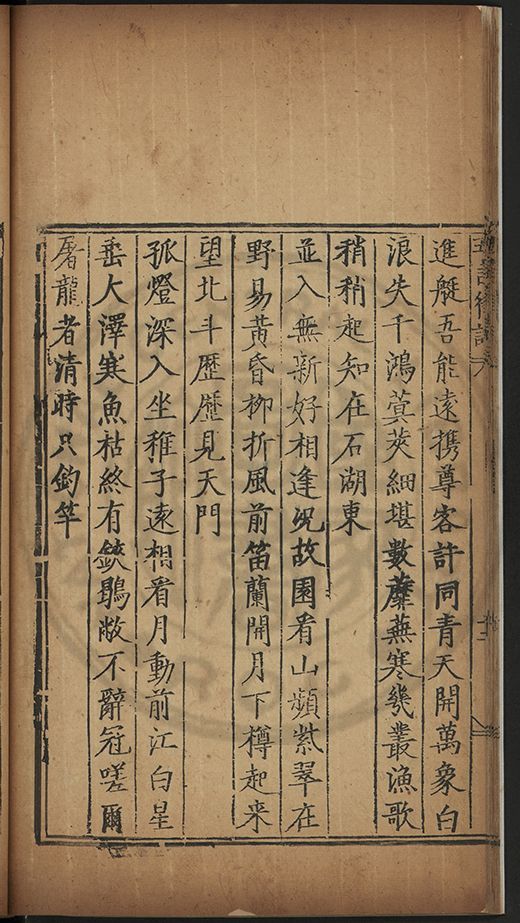 進艇吾能遠携尊客許同青天開萬象白
浪失千鴻蓂莢細堪數蘼蕪寒幾叢漁歌
稍稍起知在石湖東
並入無新好相逢況故園看山蘋紫翠在
野易黃昏柳折風前笛蘭開月下樽起来
望北斗歴歴見天門
孤燈深入坐稚子遠相看月動前江白星
垂大澤寒魚枯終有鋏鶡敝不辭冠嗟爾
屠龍者清時只釣竿